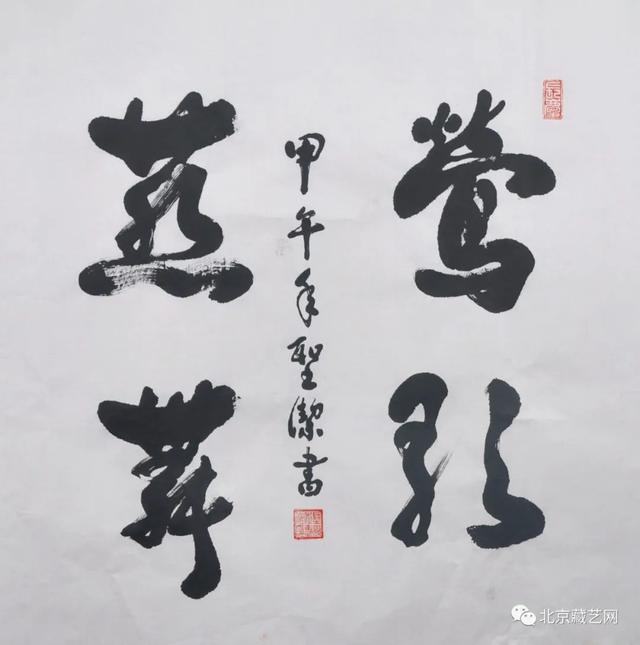 鶯歌
燕舞
甲午年聖潔書
北京藏艺网